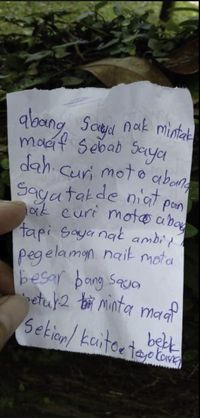 abang saya nak mintak
maaf sebab saya
dah curi moto abang
saya takde niat pan
nak curi moto abang
tapi saya nak ambil
pegelaman naik mota
besar bang saya
betul2 minta maaf
sekian/